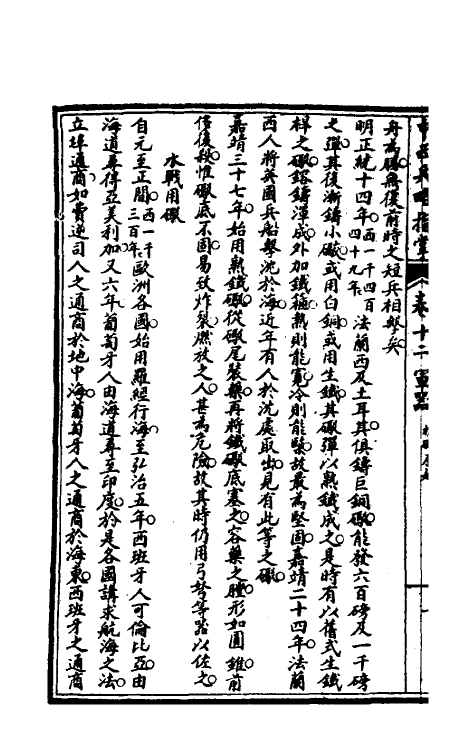 中西兵略指掌　卷十二　軍器
舟為勝無復前時之短兵相擊矣
明正統十四年西一千四百四十九年法蘭西及土耳其俱鑄巨銅礮能發六百磅及一千磅
之彈其後漸鑄小礮或用白銅或用生鐵其礮彈以熟鐵成之是時有以舊式生鐵
桿之礮鎔鑄渾成外加鐵箍熱則能寬冷則能緊故最為堅固嘉靖二十四年法蘭
西人將英國兵船擊沈於海近年有人於沈處取出見有此等之礮
嘉靖三十七年始用熟鐵礮從礮尾裝藥再將鐵礮底塞之容藥之膛形如圓錐前
侈後殺惟礮底不固易致炸裂燃放之人甚為危險故其時仍用弓弩等器以佐之
水戰用礮
自元至正間西一千三百年歐洲各國始用羅經行海至弘治五年西班牙人可倫比亞由
海道尋得亞美利加又六年葡萄牙人由海道尋至印度於是各國講求航海之法
立埠通商如費逆司人之通商於地中海葡萄牙人之通商於海東西班牙之通商